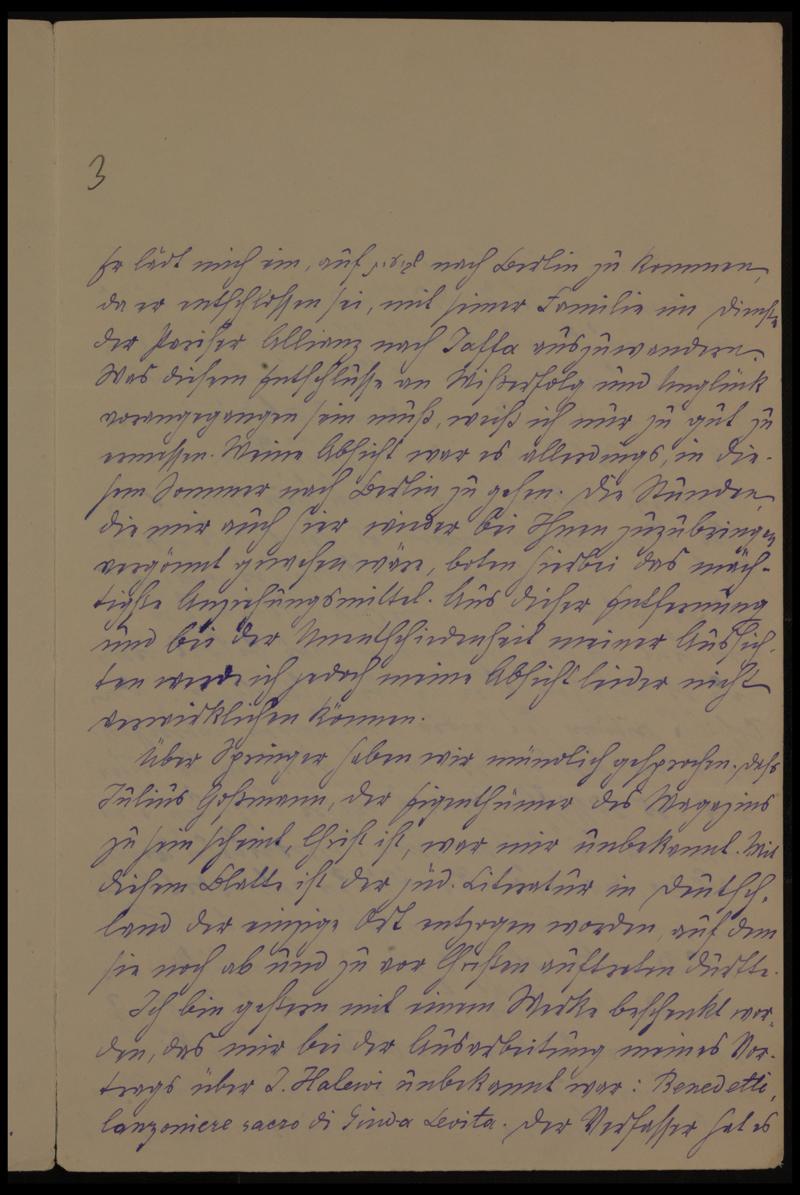 3
Er lädt mich ein, auf nach Berlin zu kommen,
da er entschlossen sei, mit seiner Familie im Dienste
der Pariser Allianz nach Jaffa auszuwandern.
Was diesem Entschlusse an Mißerfolg und Unglück
vorangegangen sein muß, weiß ich nur zu gut zu
ermessen. Meine Absicht war es allerdings, in die-
sem Sommer nach Berlin zu gehen. Die Stunden,
die mir auch hier wieder bei Ihnen zuzubringen
vergönnt gewesen wäre, boten hierbei das mäch-
tigste Anziehungsmittel. Aus dieser Entfernung
und bei der Unentschiedenheit meiner Aussich-
ten werde ich jedoch meine Absicht leider nicht
verwirklichen können.
Über Springer haben wir mündlich gesprochen. Daß
Julius Hoffmann, der Eigenthümer des Magazins
zu sein scheint, Christ ist, war mir unbekannt. Mit
diesem Blatte ist der jüd. Literatur in Deutsch-
land der einzige Ort entzogen worden, auf dem
sie noch ab und zu vor Christen auftreten durfte.
Ich bin gestern mit einem Werke beschenkt wor-
den, das mir bei der Ausarbeitung meines Vor-
trags über J. Halewi unbekannt war: Benedetti,
Canzoniere sacro di Giuda Levita. Der Verfasser hat es